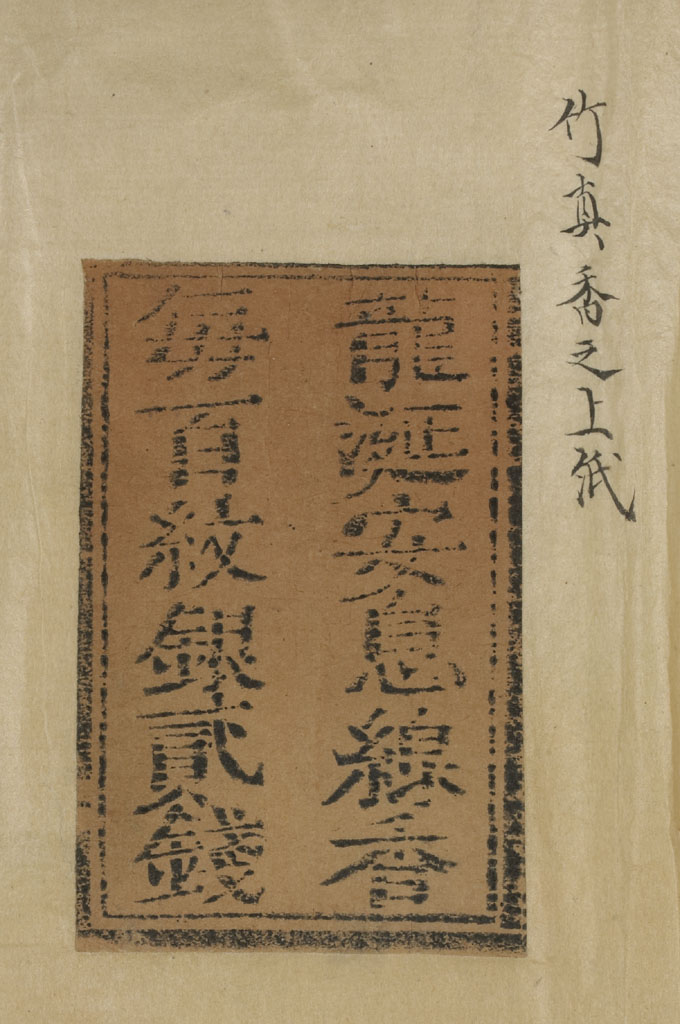 竹真香之上紙
龍涎安息線香
每百紋銀貳錢